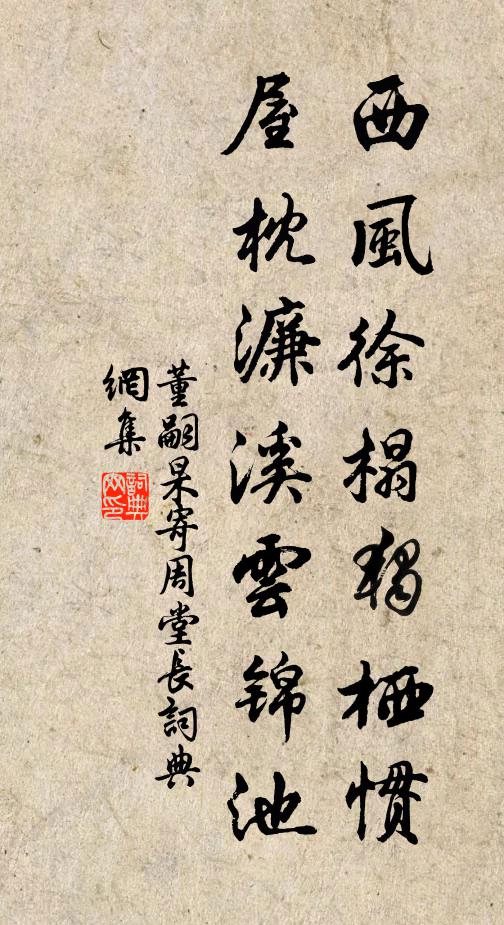 西風徐榻獨栖慣
屋枕濂溪雲錦池
董嗣杲寄周堂長詞典
網集
詞典